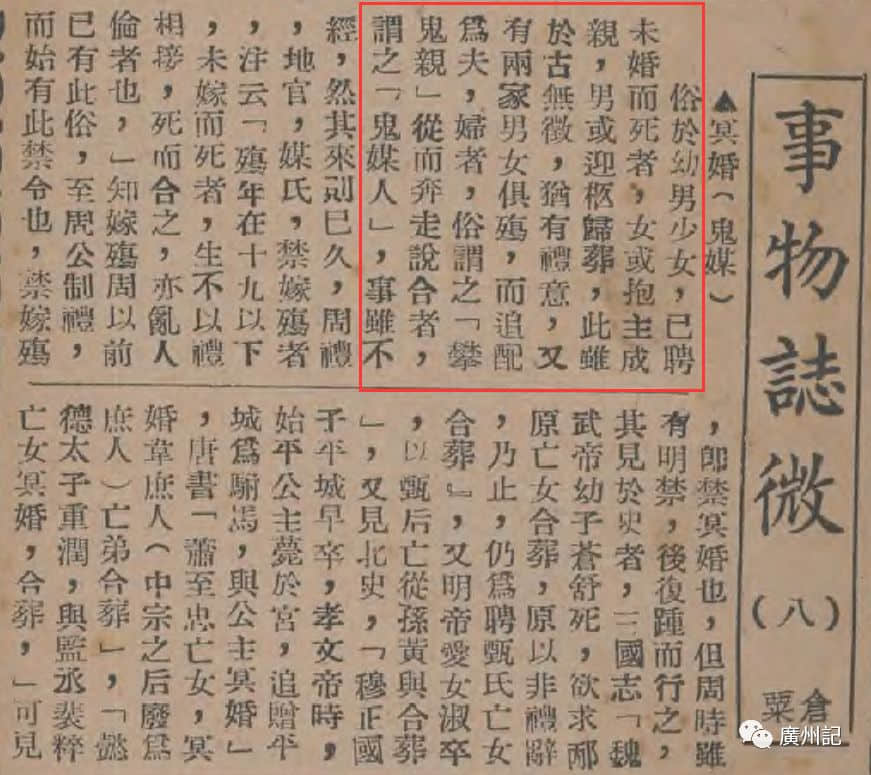 事物誌微
(八)
倉粟
▲冥婚(鬼媒)
俗於幼男少女，已聘
未婚而死者，女或抱主成
親，男或迎柩歸葬，此雖
於古無徵，猶有禮意，又
有兩家男女俱殤，而追配
爲夫，婦者，俗謂之「攀
鬼親」從而奔走說合者，
謂之「鬼媒人」，事雖不
經，然其來則已久，周禮
，地官，媒氏，禁嫁殤者
，注云「殤年在十九以下
，未嫁而死者，生不以禮
相接，死而合之，亦亂人
倫者也，」知嫁殤周以前
已有此俗，至周公制禮，
而始有此禁令也，禁嫁殤
，卽禁冥婚也，但周時雖
有明禁，後復踵而行之，
其見於史者，三國志「魏
武帝幼子蒼舒死，欲求邴
原亡女合葬，原以非禮辭
，乃止，仍爲聘甄氏亡女
合葬』，又明帝愛女淑卒
，以甄后亡從孫黃與合葬
」，又見北史，「穆正國
子平城早卒，孝文帝時，
始平公主薨於宮，追贈平
城爲駙馬，與公主冥婚」
，唐書「蕭至忠亡女，冥
婚韋庶人(中宗之后廢爲
庶人)亡弟合葬」，「懿
德太子重潤，與監丞裴粹
亡女冥婚，合葬，」可見
廣州記